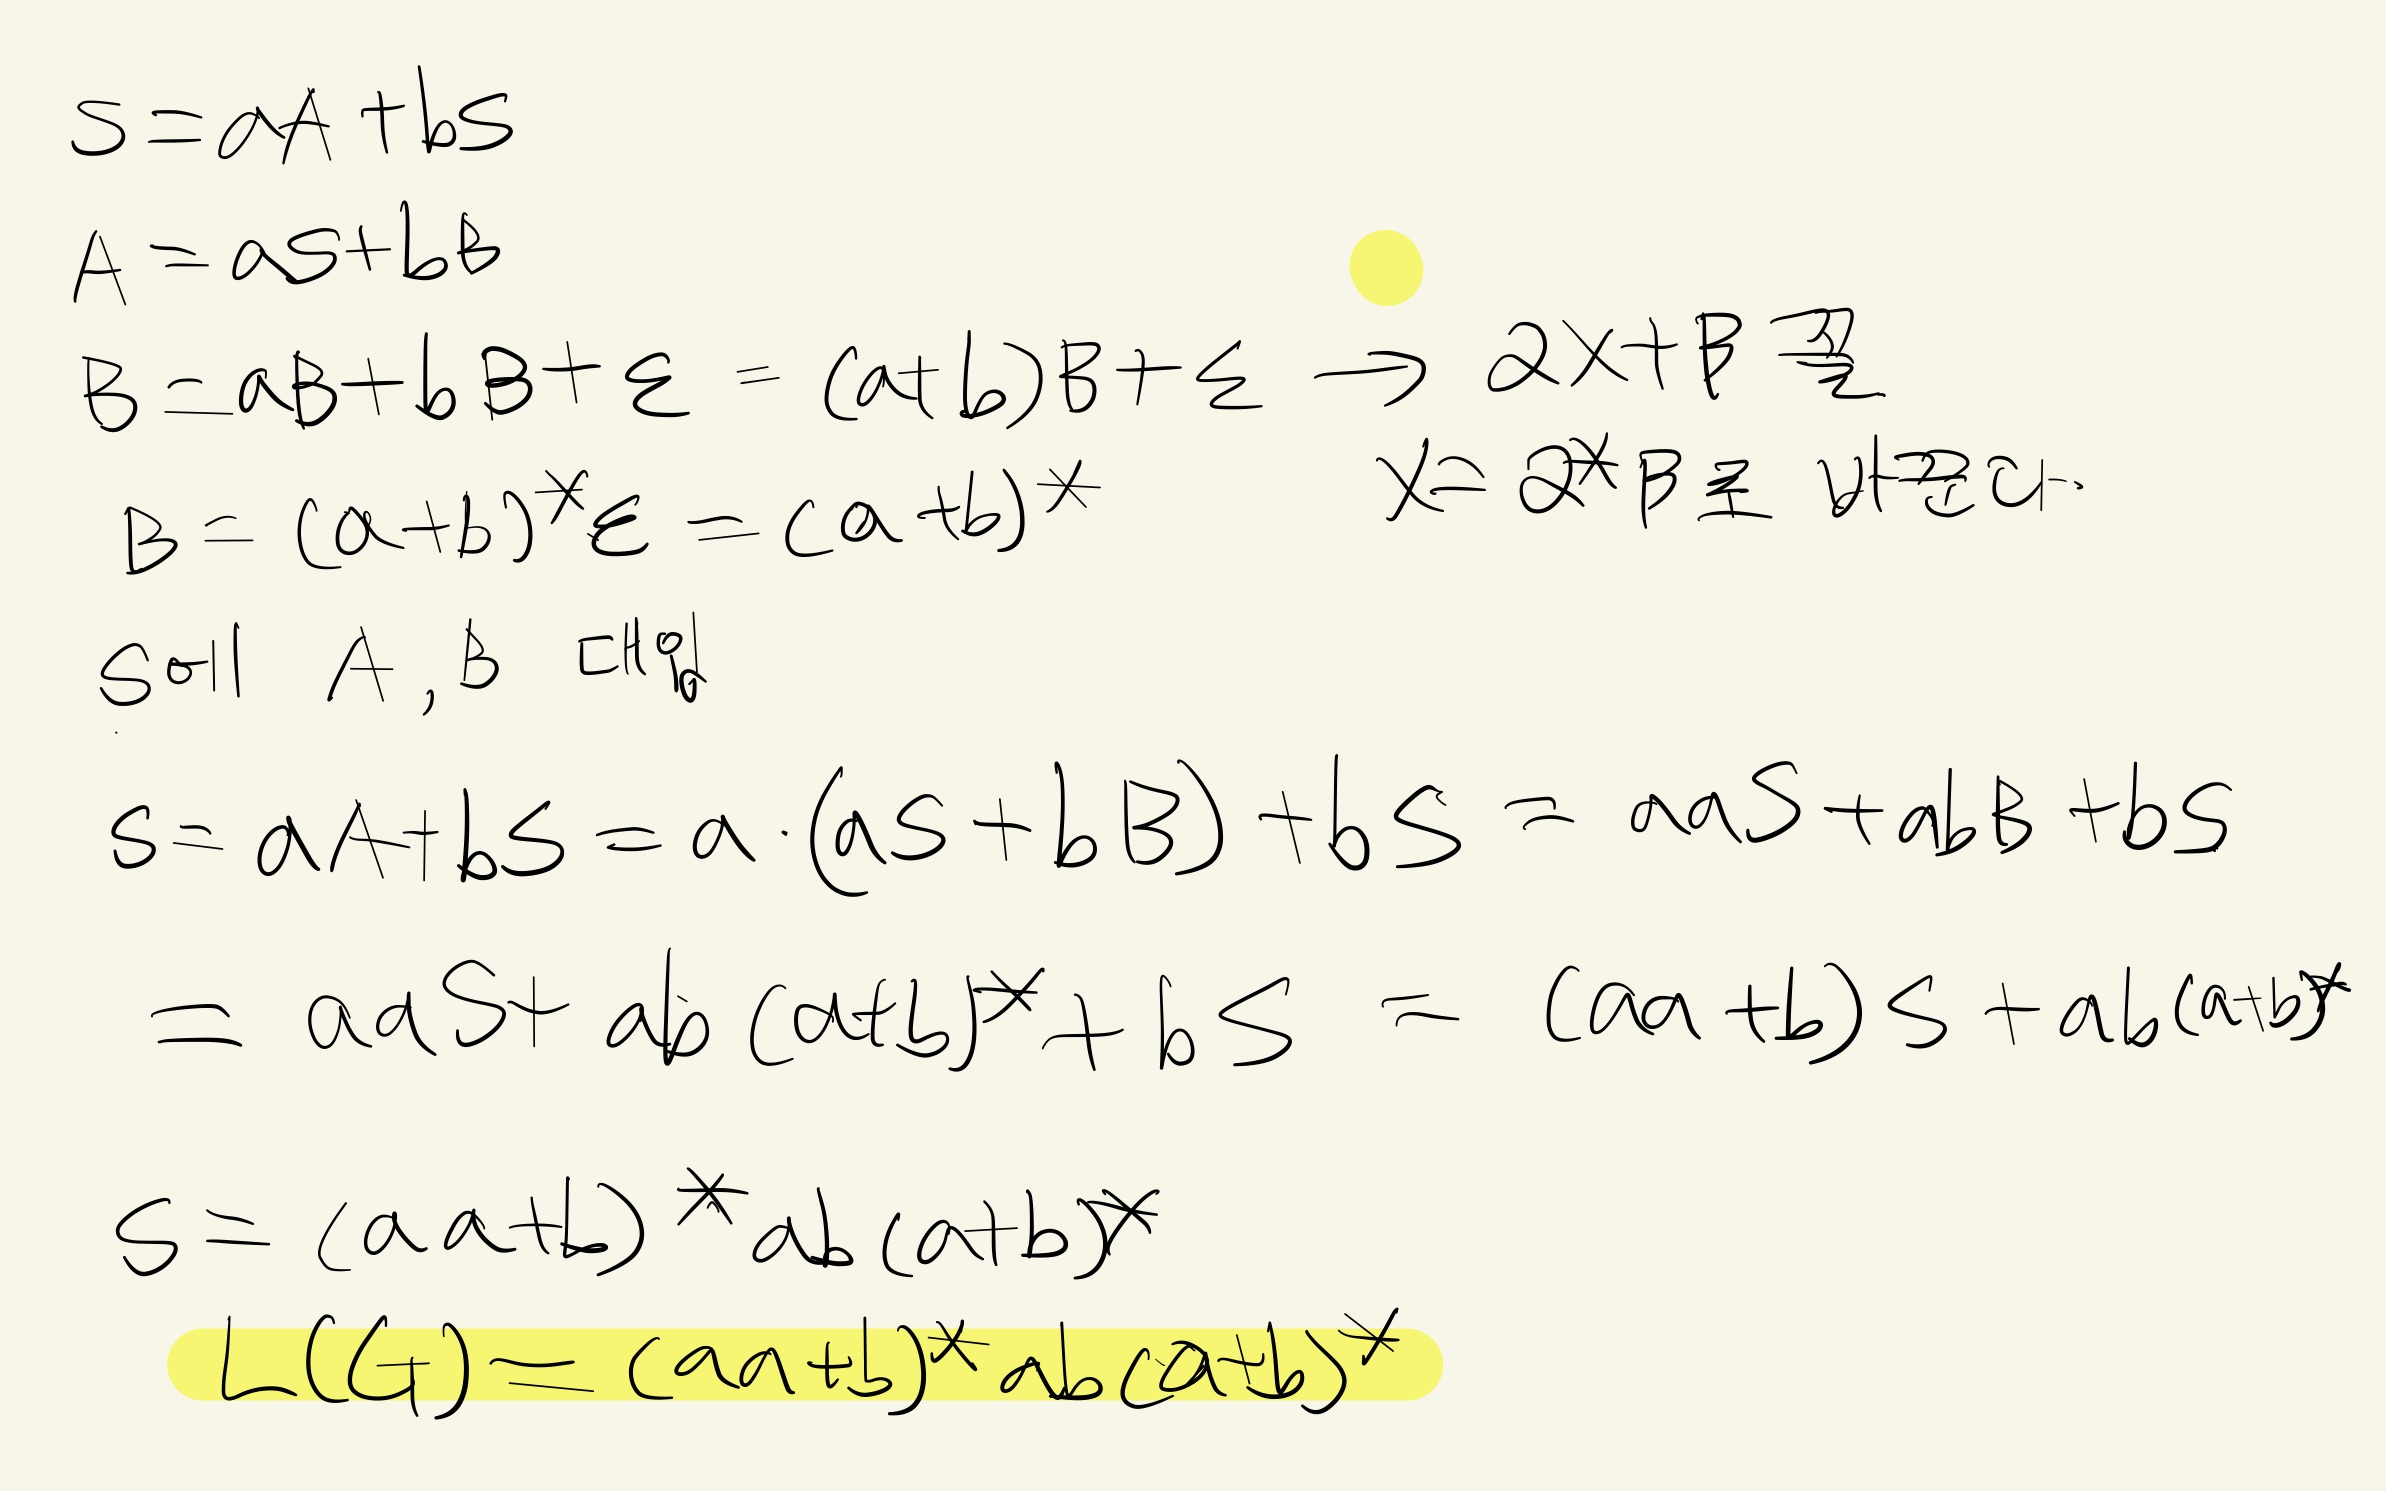 S = aA + bS
A = aS + bB
B = aB + bB + ε = (a+b)B + ε → 2X + B 꼴
B = (a+b)*ε = (a+b)* X = 2*B로 바꾼다.
S에 A, B 대입
S = aA + bS = a·(aS + bB) + bS = aaS + abB + bS
= aaS + ab(a+b)* + bS = (aa+b)S + ab(a+b)*
S = (aa+b)*ab(a+b)*
L(G) = (aa+b)*ab(a+b)*